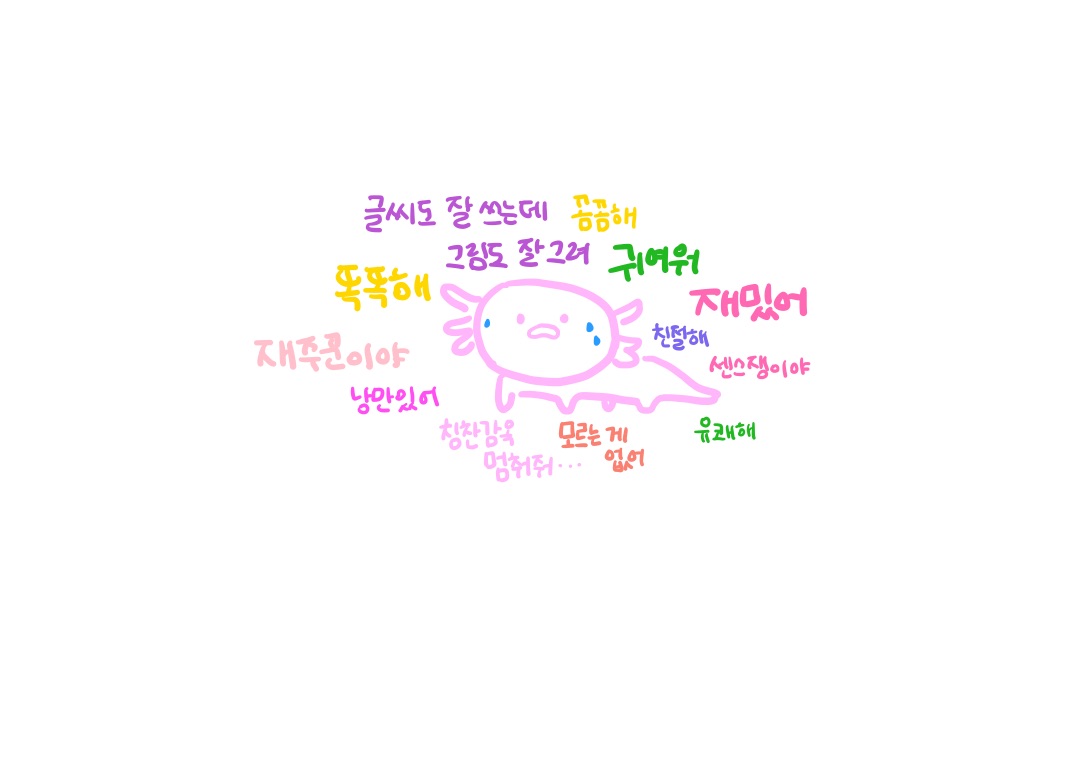 글씨도 잘 쓰는데
꼼꼼해
그림도 잘 그려
귀여워
똑똑해
재밌어
친절해
재주꾼이야
센스쟁이야
낭만있어
칭찬감옥
멈춰줘...
모르는 게
없어
유쾌해